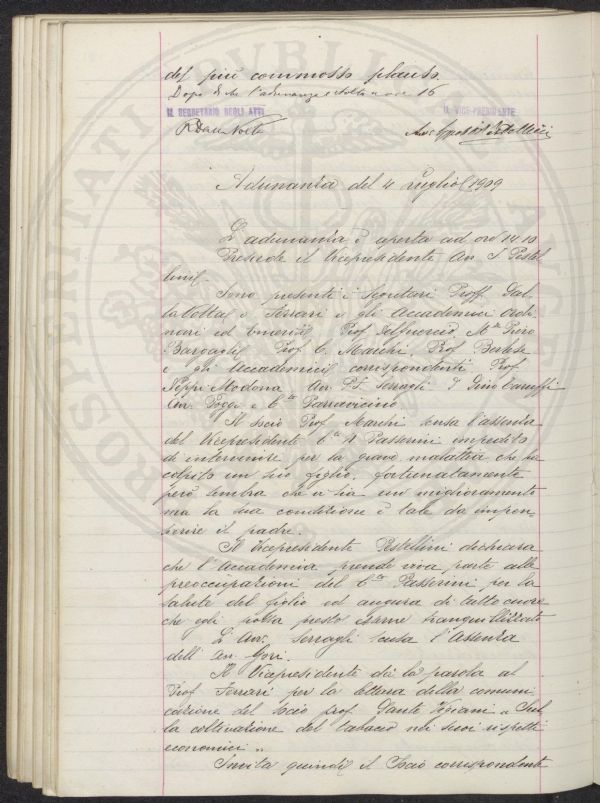 del più commosso plauso.
Dopo di che l'adunanza è sciolta a ore 16
IL SEGRETARIO DEGLI ATTI
IL VICE-PRESIDENTE
Adunanza del 4 Luglio 1909
L'adunanza è aperta ad ore 14.10
Presiede il Vicepresidente Avv. I. Pestel
lini.
Sono presenti i Segretari Proff. Dal
la Volta e Ferrari e gli Accademici ordi
nari ed emeriti Prof. Delguercio M.se Piero
Bargagli, Prof. C. Marchi, Prof. Berlese
e gli Accademici corrispondenti Prof.
Peppi Modona Avv. P. F. Serragli D Gino Caruffi
Avv. Poggi e C.te Parravicino.
Il Socio Prof. Marchi scusa l'assenza
del Vicepresidente C.te N. Passerini impedito
di intervenire per la grave malattia che ha
colpito un suo figlio, fortunatamente
però sembra che vi sia un miglioramento
ma la sua condizione è tale da impen-
sierire il padre.
Il Vicepresidente Pestellini dichiara
che l'Accademia prende viva parte alle
preoccupazioni del C.te Passerini per la
salute del figlio ed augura di tutto cuore
che egli possa presto esserne tranquillizzato
L'Avv. Serragli scusa l'assenza
dell'Avv. Gori.
Il Vicepresidente dà la parola al
Prof. Ferrari per la lettura della comuni
cazione del Socio prof. Dante Vigiani "Sul
la coltivazione del tabacco nei suoi rispetti
economici".
Invita quindi il Socio corrispondente